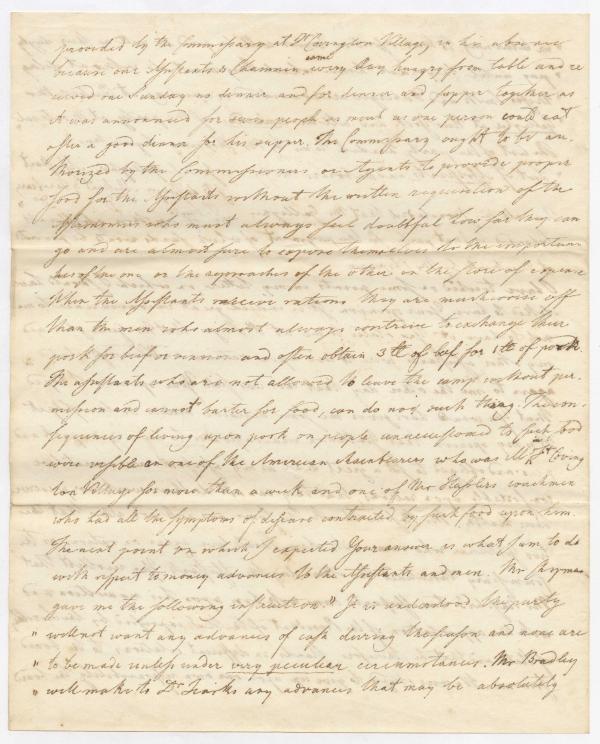 provided by the Commissary at Dr Covington Village, in his absence
because our Assistants & Chainmen came every day hungry from table and re
ceived one Sunday no dinner and for dinner and supper together as
it was announced for seven people as much as one person could eat
after a good dinner for his supper. The Commissary ought to be au
thorized by the Commissioners or Agents to provide proper
food for the Assistants without the written requisition of the
Astronomers who must always feel doubtful how far they can
go and are almost sure to expose themselves to the importuni
ties of the one or the reproaches of the other in the store of expense
When the Assistants receive rations they are much worse off
than the men who almost always contrive to exchange their
pork for beef or venison and often obtain 3 tt of beef for 1 tt of pork
The assistants who are not allowed to leave the camp without per
mission and cannot barter for food, can do no such thing. The con
sequences of living upon pork on people unaccustomed to such food
were visible on one of the American Axenbearers who was ill in Dr Coving
ton Village for more than a week and one of Mr Hasslers coachmen
who had all the symptoms of disease contracted by such food upon him.
The next point on which I expected Your answer is what I am to do
with respect to money advances to the Assistants and men. Mr
gave me the following instruction. " It is understood the party
" will not want any advances of cash during the season and none are
" to be made unless under very peculiar circumstances. Mr Bradley
" will make to Dr Tiarks any advances that may be absolutely